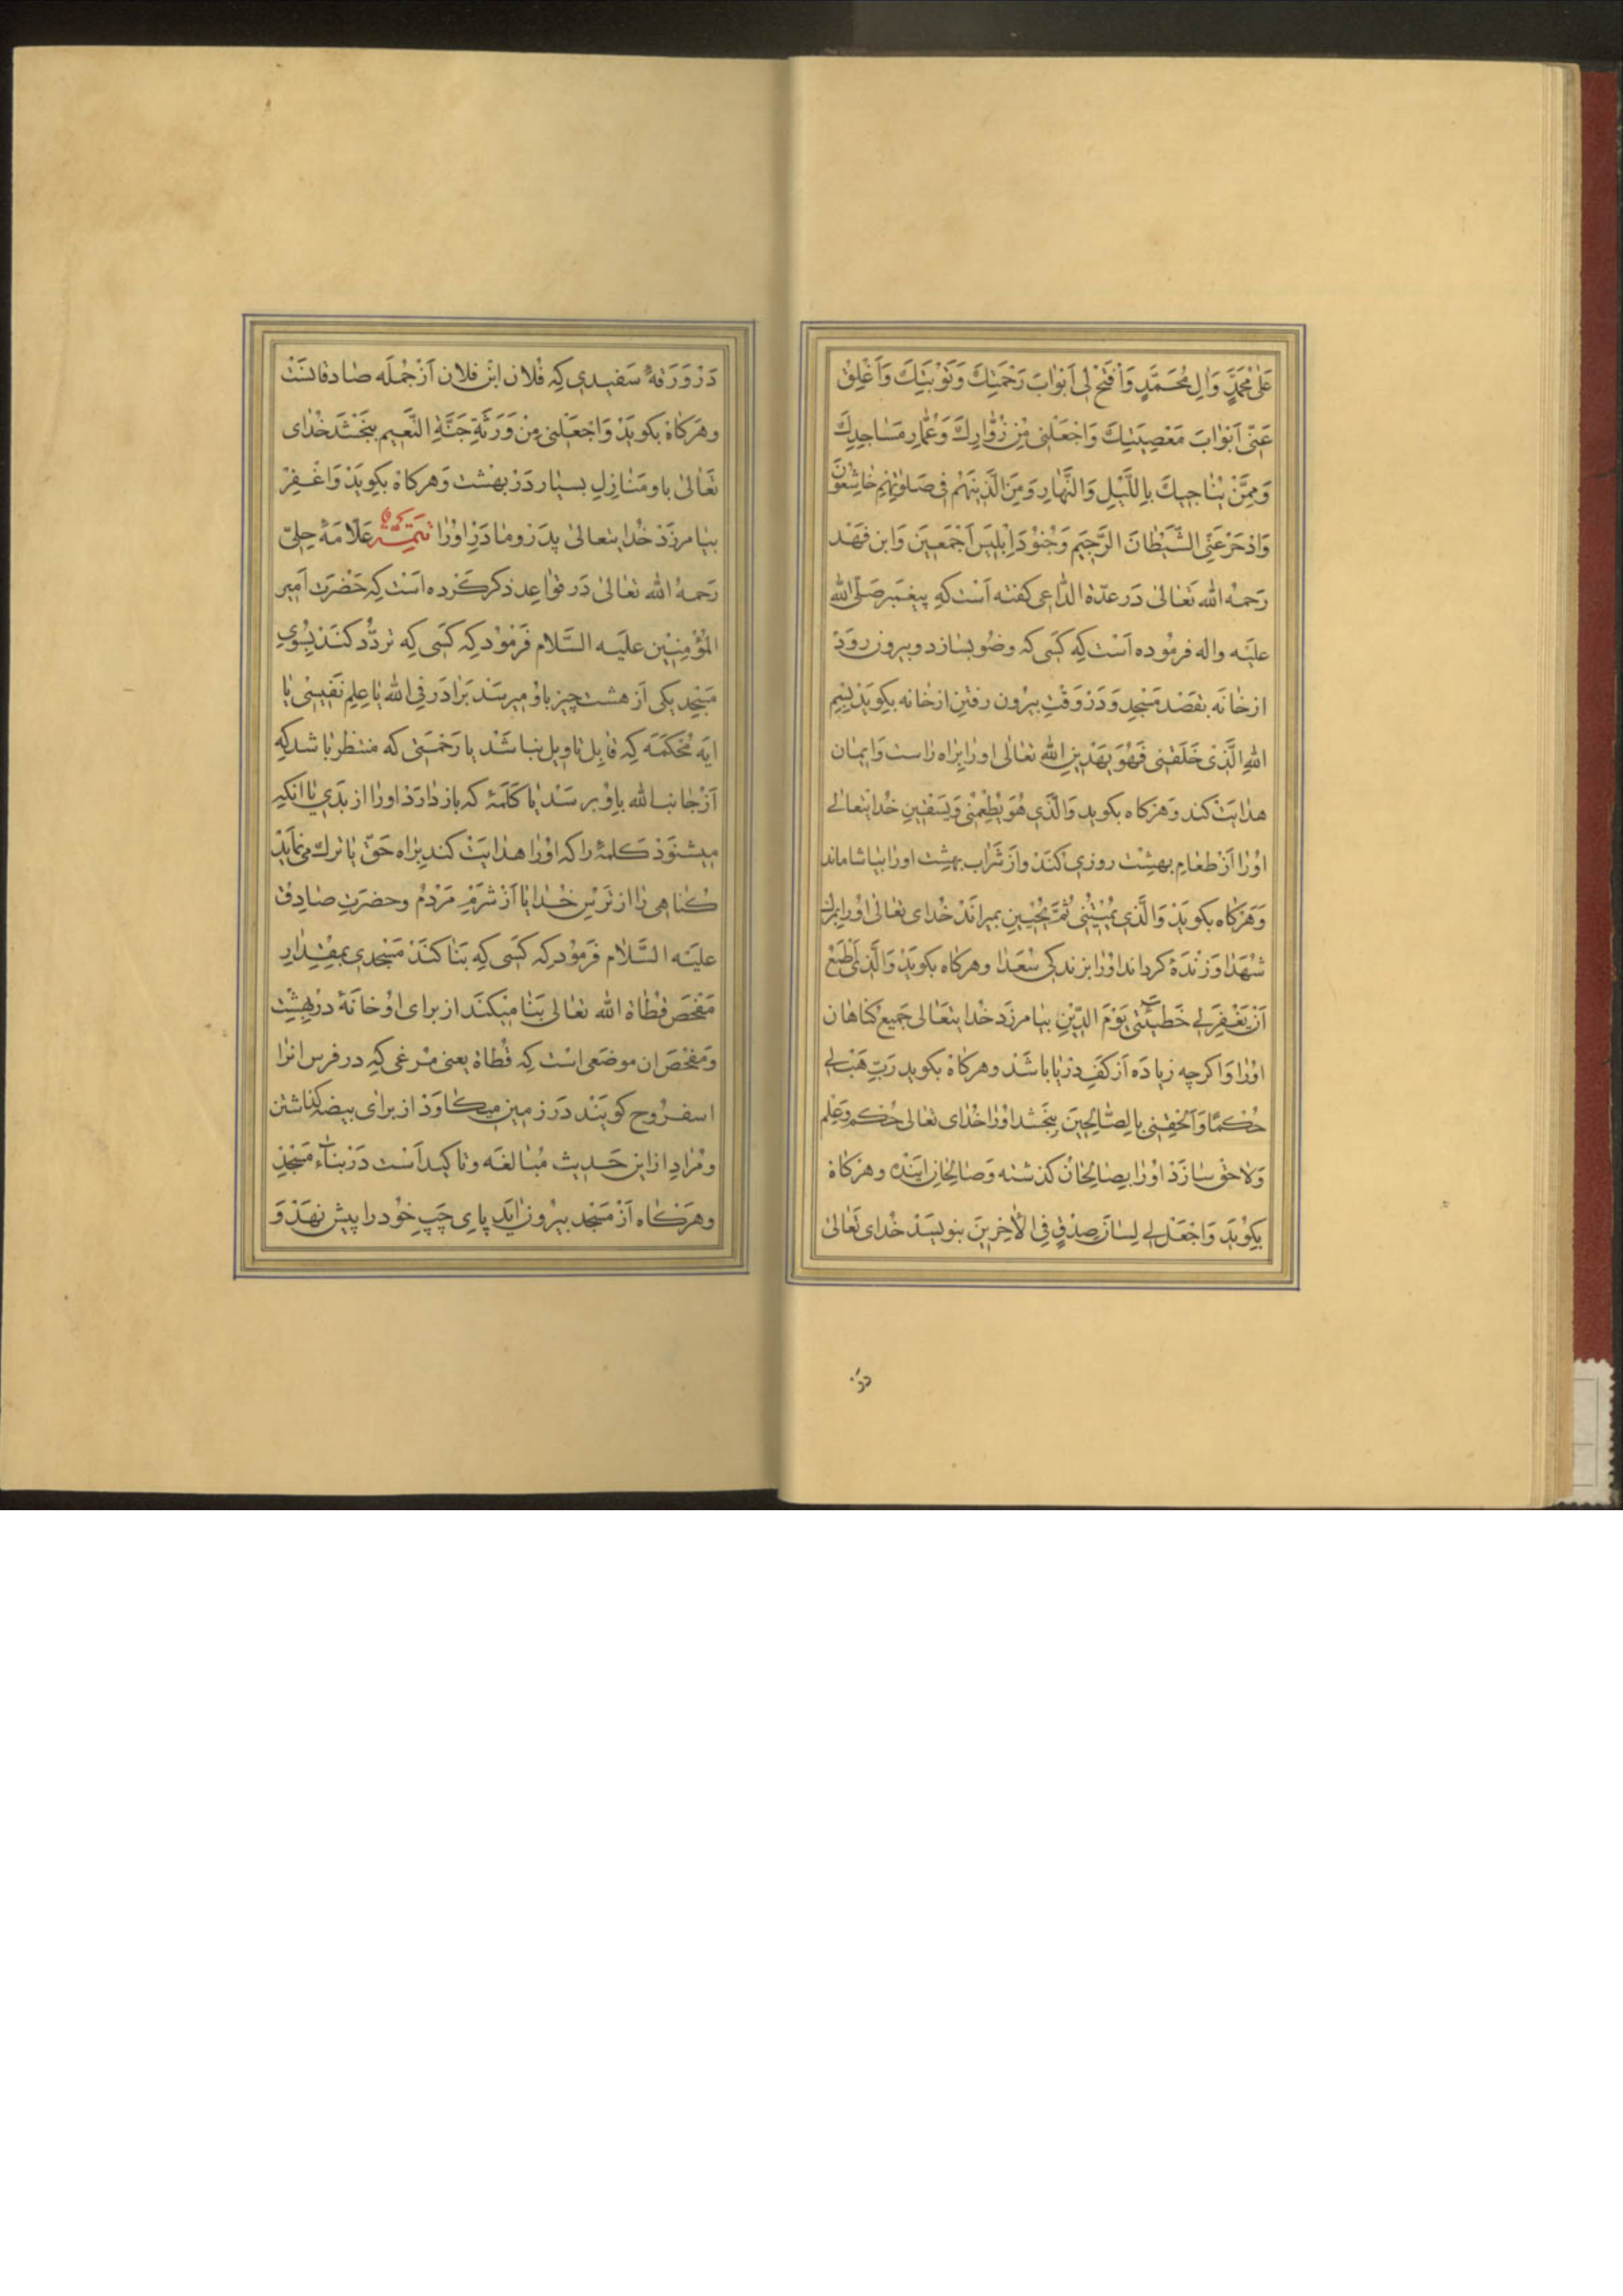 عَلٰى مُحَمَّدٍ وَالِ مُحَمَّدٍ وَافْتَحْ لى اَبْوٰابَ رَحْمَتِكَ وَتَوْبَتِكَ وَاَغْلِقْ
عَنّى اَبْوٰابَ مَعْصِيَتِكَ وَاجْعَلْنى مِنْ زُوّٰارِكَ وَعُمّٰارِ مَسٰاجِدِكَ
وَمِمَّنْ يُنٰاجيكَ بِاللَّيْلِ وَالنَّهٰارِ وَمِنَ الَّذينَ هُمْ فى صَلٰوتِهِمْ خٰاشِعُونَ
وَادْحَرْ عَنّى الشَّيْطٰانَ الرَّجيمَ وَجُنُودَ اِبْليسَ اَجْمَعينَ وَابن فَهْد
رَحمهُ الله تَعٰالىٰ دَر عدّة الدّاعى كفته اَست كه پيغمبر صَلّى الله
عليْه واله فرمُوده اَست كه كسَى كه وضُو بسٰازد وبيرون روَدْ
ازخٰانَه بقصْد مَسْجِد وَدَرْ وَقْتِ بيرُون رفتن ازخٰانه بكويَدْ بِسْمِ
اللهِ الَّذى خَلَقَنى فَهُوَ يَهْدينِ الله تعٰالى اورٰا براه رٰاست وَايمٰان
هدٰايَتْ كند وَهَركاه بكويد وَالَّذى هُوَ يُطْعِمُنى وَيَسْقينِ خدايتعالے
اوُرٰا اَز طعٰام بهشْت روزى كنَدْ وازْ شَرٰاب بهشت اورٰا بياشاماند
وَهَركاه بكويَدْ وَالَّذى يُميتُنى ثُمَّ يُحْيينِ بميراندْ خُداى تعالى اوُرا بمرك
شهَدٰا وَزنْدَهٔ كرداند اوُرا بزندكى سُعَدٰا وهركاه بكويَدْ وَالَّذى اَطْمَعُ
اَنْ يَغْفِرَ لى خَطيئَتى يَوْمَ الدّينِ بيامرزَد خُدايتَعٰالى جَميع كناهان
اورٰا وَاكرچه زيادَه اَز كَفِ دَرْيٰا باشَدْ وهركاه بكويد رَبِّ هَبْ لى
حُكْمًا وَاَلْحِقْنى بِالصّٰالِحينَ ببخْشد اوُرٰا خُدٰاى تعٰالى حُكم وَعِلم
وَلاحق سٰازَدْ اوُرٰا بصٰالِحٰان كذشته وَصٰالحان ايَنْده وهركاه
بكويَد وَاجْعَلْ لى لِسٰانَ صِدْقٍ فِى الْاٰخِرينَ بنويسَدْ خُداى تَعٰالى
در
دَرْ وَرَقهٔ سَفيدى كِه فلان ابْن فلان اَزْ جُملَه صٰادقانَسْت
وهَركاه بكويَدْ وَاجْعَلْنى مِنْ وَرَثَةِ جَنَّةِ النَّعيمِ ببَخْشَد خُدٰاى
تَعٰالىٰ باو مَنٰازِلِ بسيار دَرْ بهْشت وَهركاه بكويَدْ وَاغْفِرْ
بيٰامرزَدْ خُدايتعٰالىٰ پدَر ومٰادَرِ اوُرٰا تتمّه عَلّامَهٔ حِلىّ
رَحمهُ الله تعٰالىٰ دَر قوٰاعِد ذكر كَرْده اسَت كه حَضْرَت اَمير
الْمُؤْمِنينَ عليَه السَّلام فَرمُود كه كسَى كه تردُّد كنَد بسُوى
مَسْجِد يكى اَز هشت چيز باوُ ميرسَدْ بَرٰادَر فِى الله يٰا عِلم نَفيسى يٰا
ايَه مُحْكَمَه كِه قابِل تاويل نباشَدْ يا رَحْمَتى كه منتظر بٰاشد كه
اَزْ جٰانب الله باوْ برسَدْ يٰا كَلَمَهٔ كه بازدٰارَدْ اورٰا از بدَى يٰا انكه
ميشنوَدْ كلمهٔ را كه اوُرٰا هدٰايَتْ كند بَرٰاه حَقّ يٰا ترك مى نمٰايَدْ
كُناهى رٰا از تَرْس خُدٰا يٰا اَزْ شَرْمِ مَرْدُم وحضرَت صٰادِق
عليْه السَّلام فَرمُود كه كسَى كه بَنٰا كنَدْ مَسْجدى بمِقْدٰارِ
مَفْحَصِ قطٰاة الله تعٰالى بَنٰا ميكنَد از براى اوُ خانَهٔ در بهشت
وَمَفْحَص ان موضعى اسْت كه قُطٰاة يعنى مرْغى كه در فرس انرٰا
اسفرُوح كويَنْد دَر زمين ميكاوَدْ از براى بيضه كذاشتن
ومُرٰاد از اين حَديث مُبٰالغَه وتاكيد اَسْت دَرْ بنٰاء مَسْجِدْ
وهَركاه اَزْ مَسْجد بيرُون ايَد پاى چَپِ خُود را پيش نهَدْ وَ